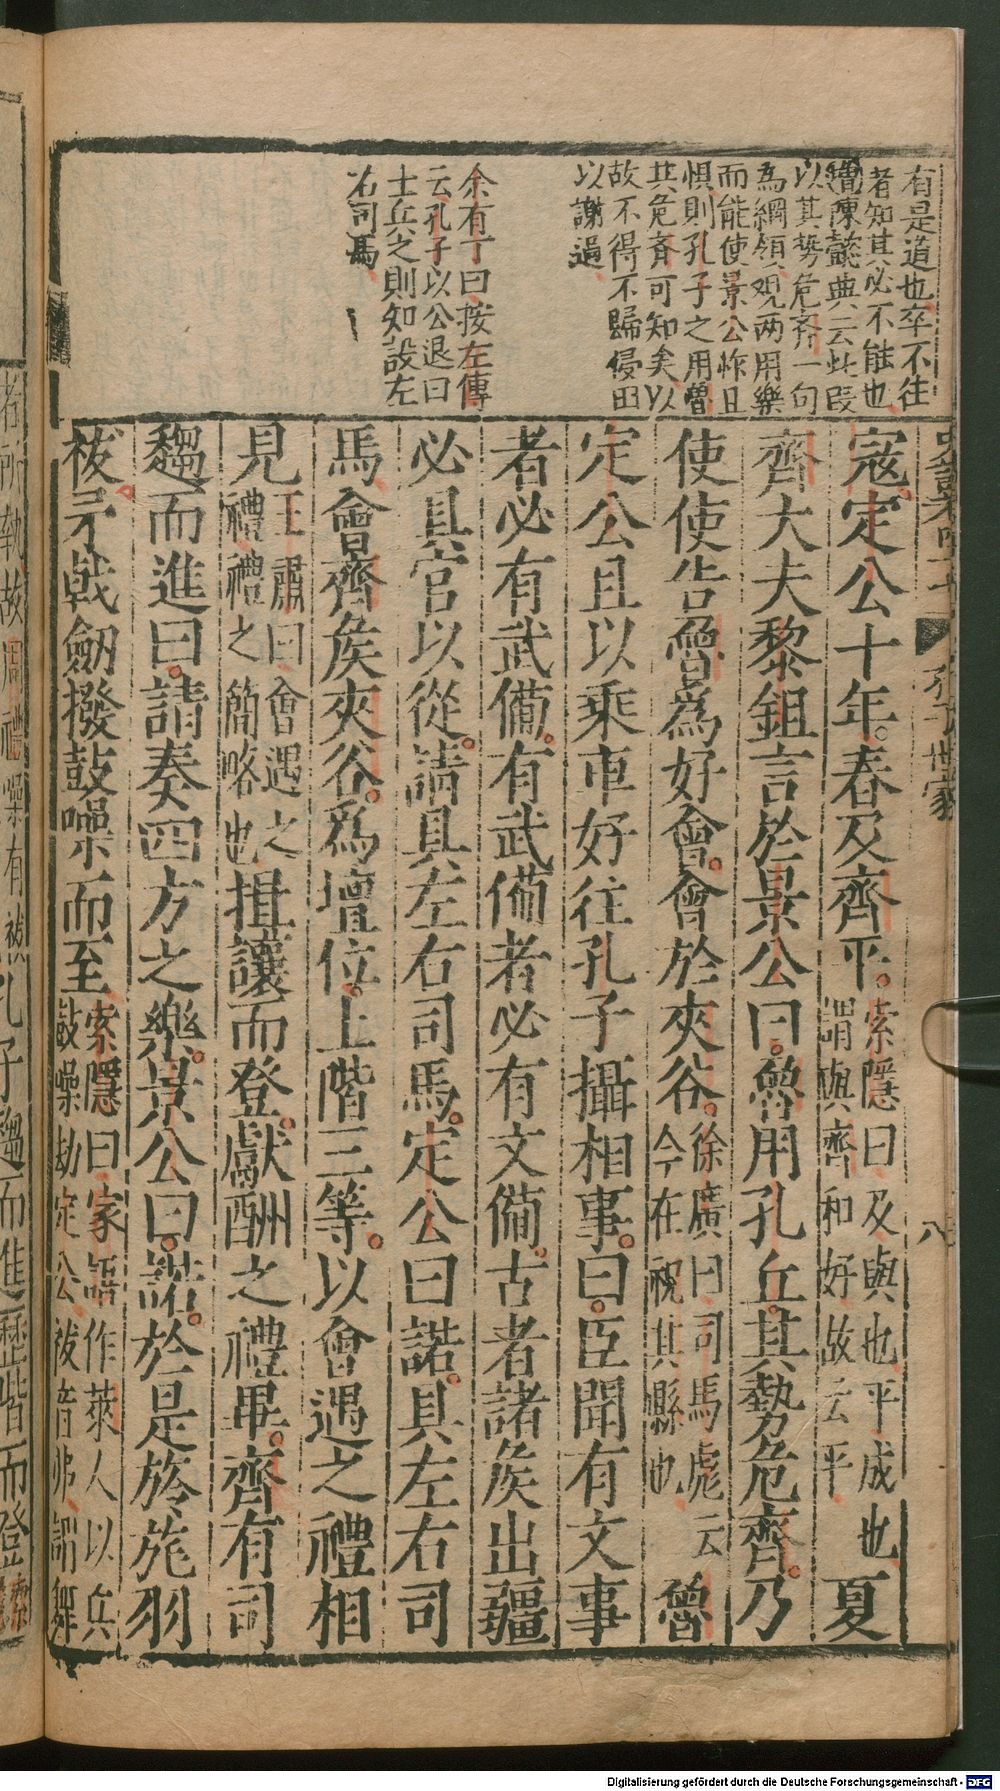 有是道也卒不往
者知其必不能也
陳懿典云此段
以其勢危齊一句
為綱領觀两用樂
而能使景公怍且
懼則孔子之用魯
其危齊可知矣以
故不得不歸侵田
以謝過
余有丁曰按左傳
云孔子以公退曰
士兵之則知設左
右司馬
孔子世家
八
寇定公十年春及齊平索隱曰及與也平成也
謂與齊和好故云平
夏
齊大夫黎鉏言於景公曰魯用孔丘其勢危齊乃
使使告魯爲好會會於夾谷徐廣曰司馬彪云
今在祝其縣也
魯
定公且以乘車好往孔子攝相事曰臣聞有文事
者必有武備有武備者必有文備古者諸矦出疆
必具官以從請具左右司馬定公曰諾具左右司
馬會齊矦夾谷爲壇位土階三等以會遇之禮相
見
王肅曰會遇之
禮禮之簡略也
揖讓而登獻酬之禮畢齊有司
趨而進曰請奏四方之樂景公曰諾於是旍旄羽
袚矛戟劒撥鼓噪而至
索隱曰家語作萊人以兵
鼔噪劫定公袚音弗謂舞
者所執故周禮樂有袚
孔子趨而進歷階而登
Digitalisierung gefördert durch die Deutsche Forschungsgemeinschaft - DFG